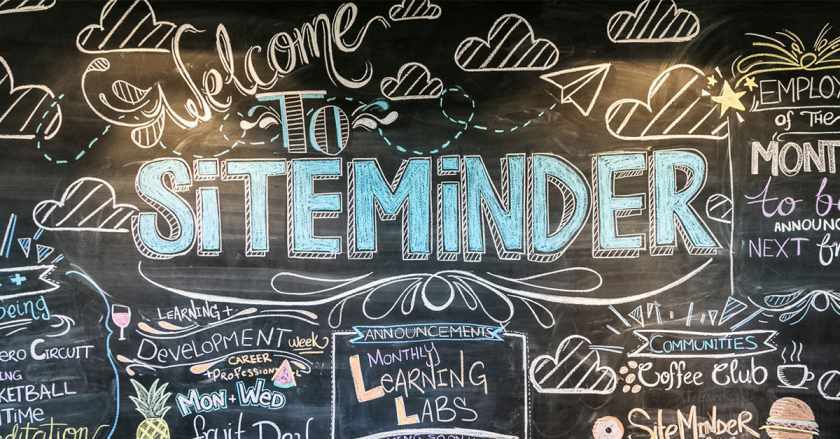 Welcome
To
SiTEMiNDER
EMPLOY
of THE
MONT
to b
ANNOUNC
NEXT fr
being
ERO CIRCUIT
ING
KETBALL
TIME
editation
LEARNING +
DEVELOPMENT week
CAREER
+ PROFESSIONAL
MON + WED
fruit Del
ANNOUNCEMENTS
MONTHLY
LEARNING
LABS
COMING SOON
COMMUNITIES
Coffee Club
SiteMinder